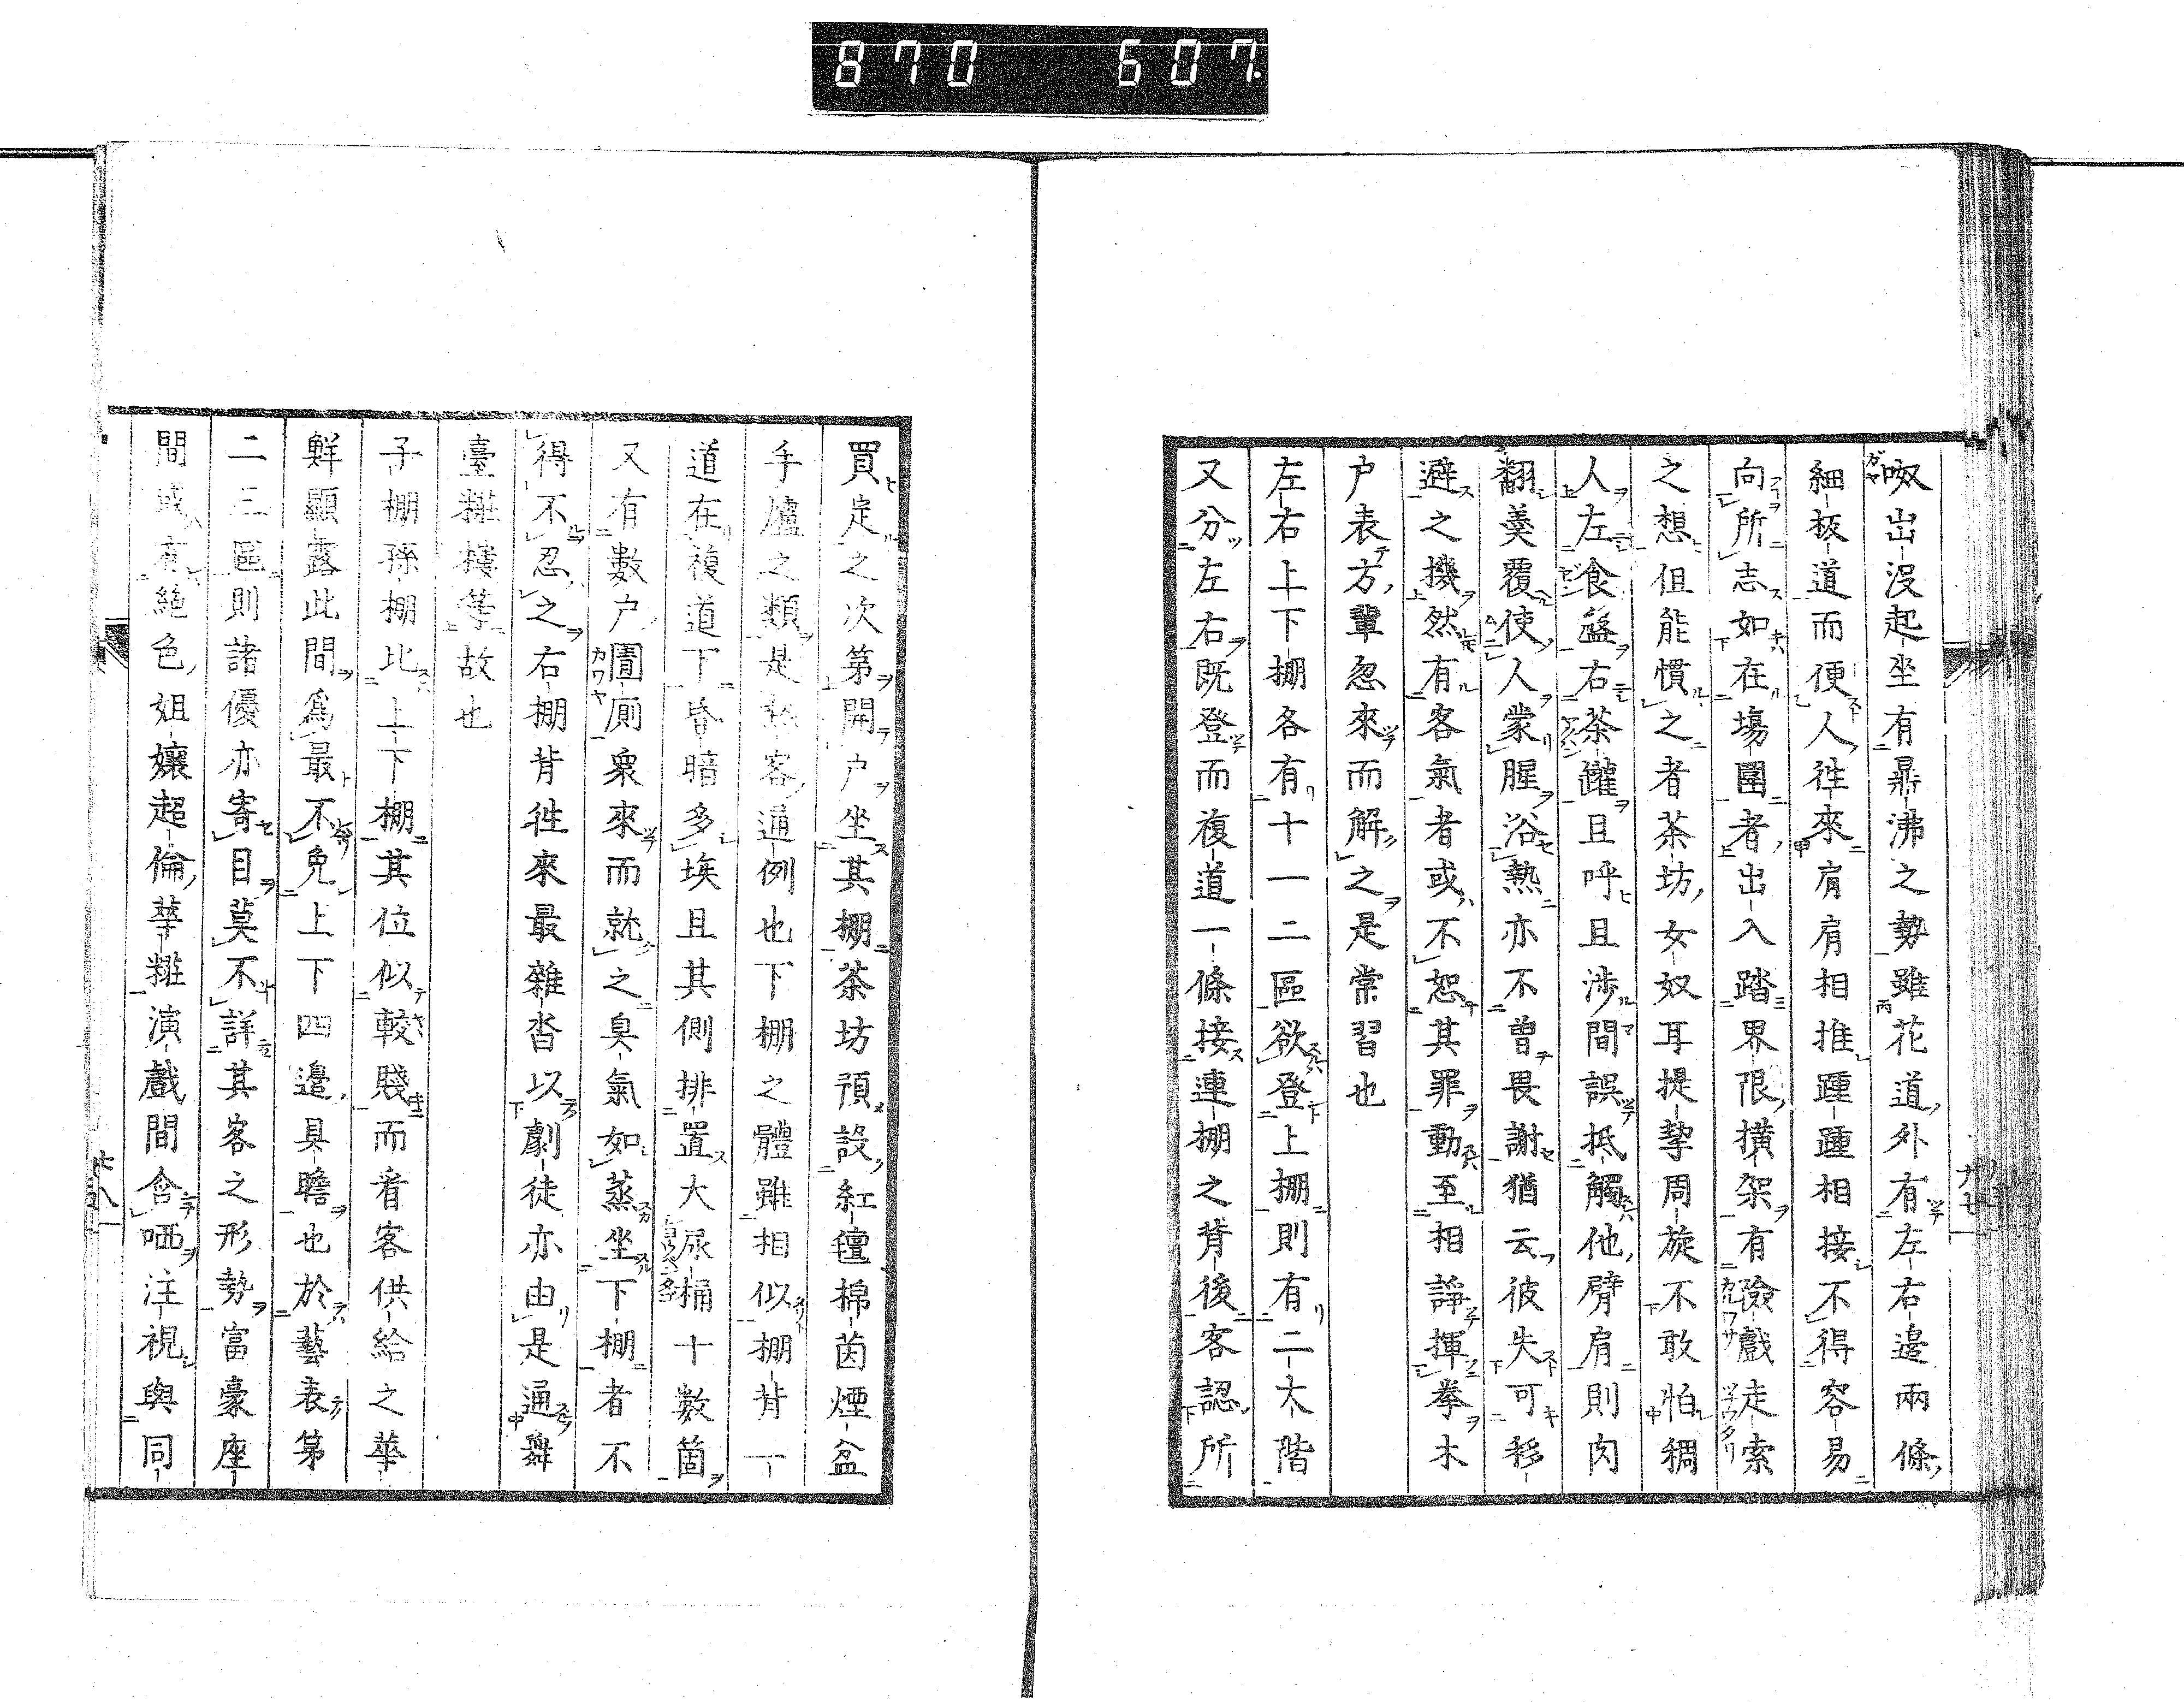 870 607.
呶出沒起坐有鼎沸之勢雖花道外有左右邊兩條
細板道而便人徃來肩肩相推踵踵相接不得容易
向所志如在塲圍者出入踏界限攩架有險戲走索
之想但能慣之者茶坊女奴耳提挈周旋不敢怕稠
人左食盤右茶鑵且呼且涉間誤抵觸他臂肩則肉
翻羹覆使人蒙腥浴熱亦不曾畏謝猶云彼失可移
避之機然有客氣者或不恕其罪動至相諍揮拳木
户表方輩忽來而解之是常習也
左右上下棚各有十一二區欲登上棚則有二大階
又分左右既登而複道一條接連棚之背後客認所
買定之次第開户坐其棚茶坊預設紅氊棉茵煙盆
手爐之類是 客通例也下棚之體雖相似棚背一
道在複道下昏暗多埃且其側排置大尿桶十數箇
又有數户圊厠衆來而就之臭氣如蒸坐下棚者不
得不忍之右棚背徃來最雜沓以劇徒亦由是通舞
臺糚樓等故也
子棚孫棚比上下棚其位似較賤而看客供給之華
鮮顯露此間爲最不免上下四邊具瞻也於藝表第
二三區則諸優亦寄目莫不詳其客之形勢富豪座
間或有絕色姐孃超倫華糚演戲間含哂注視與同